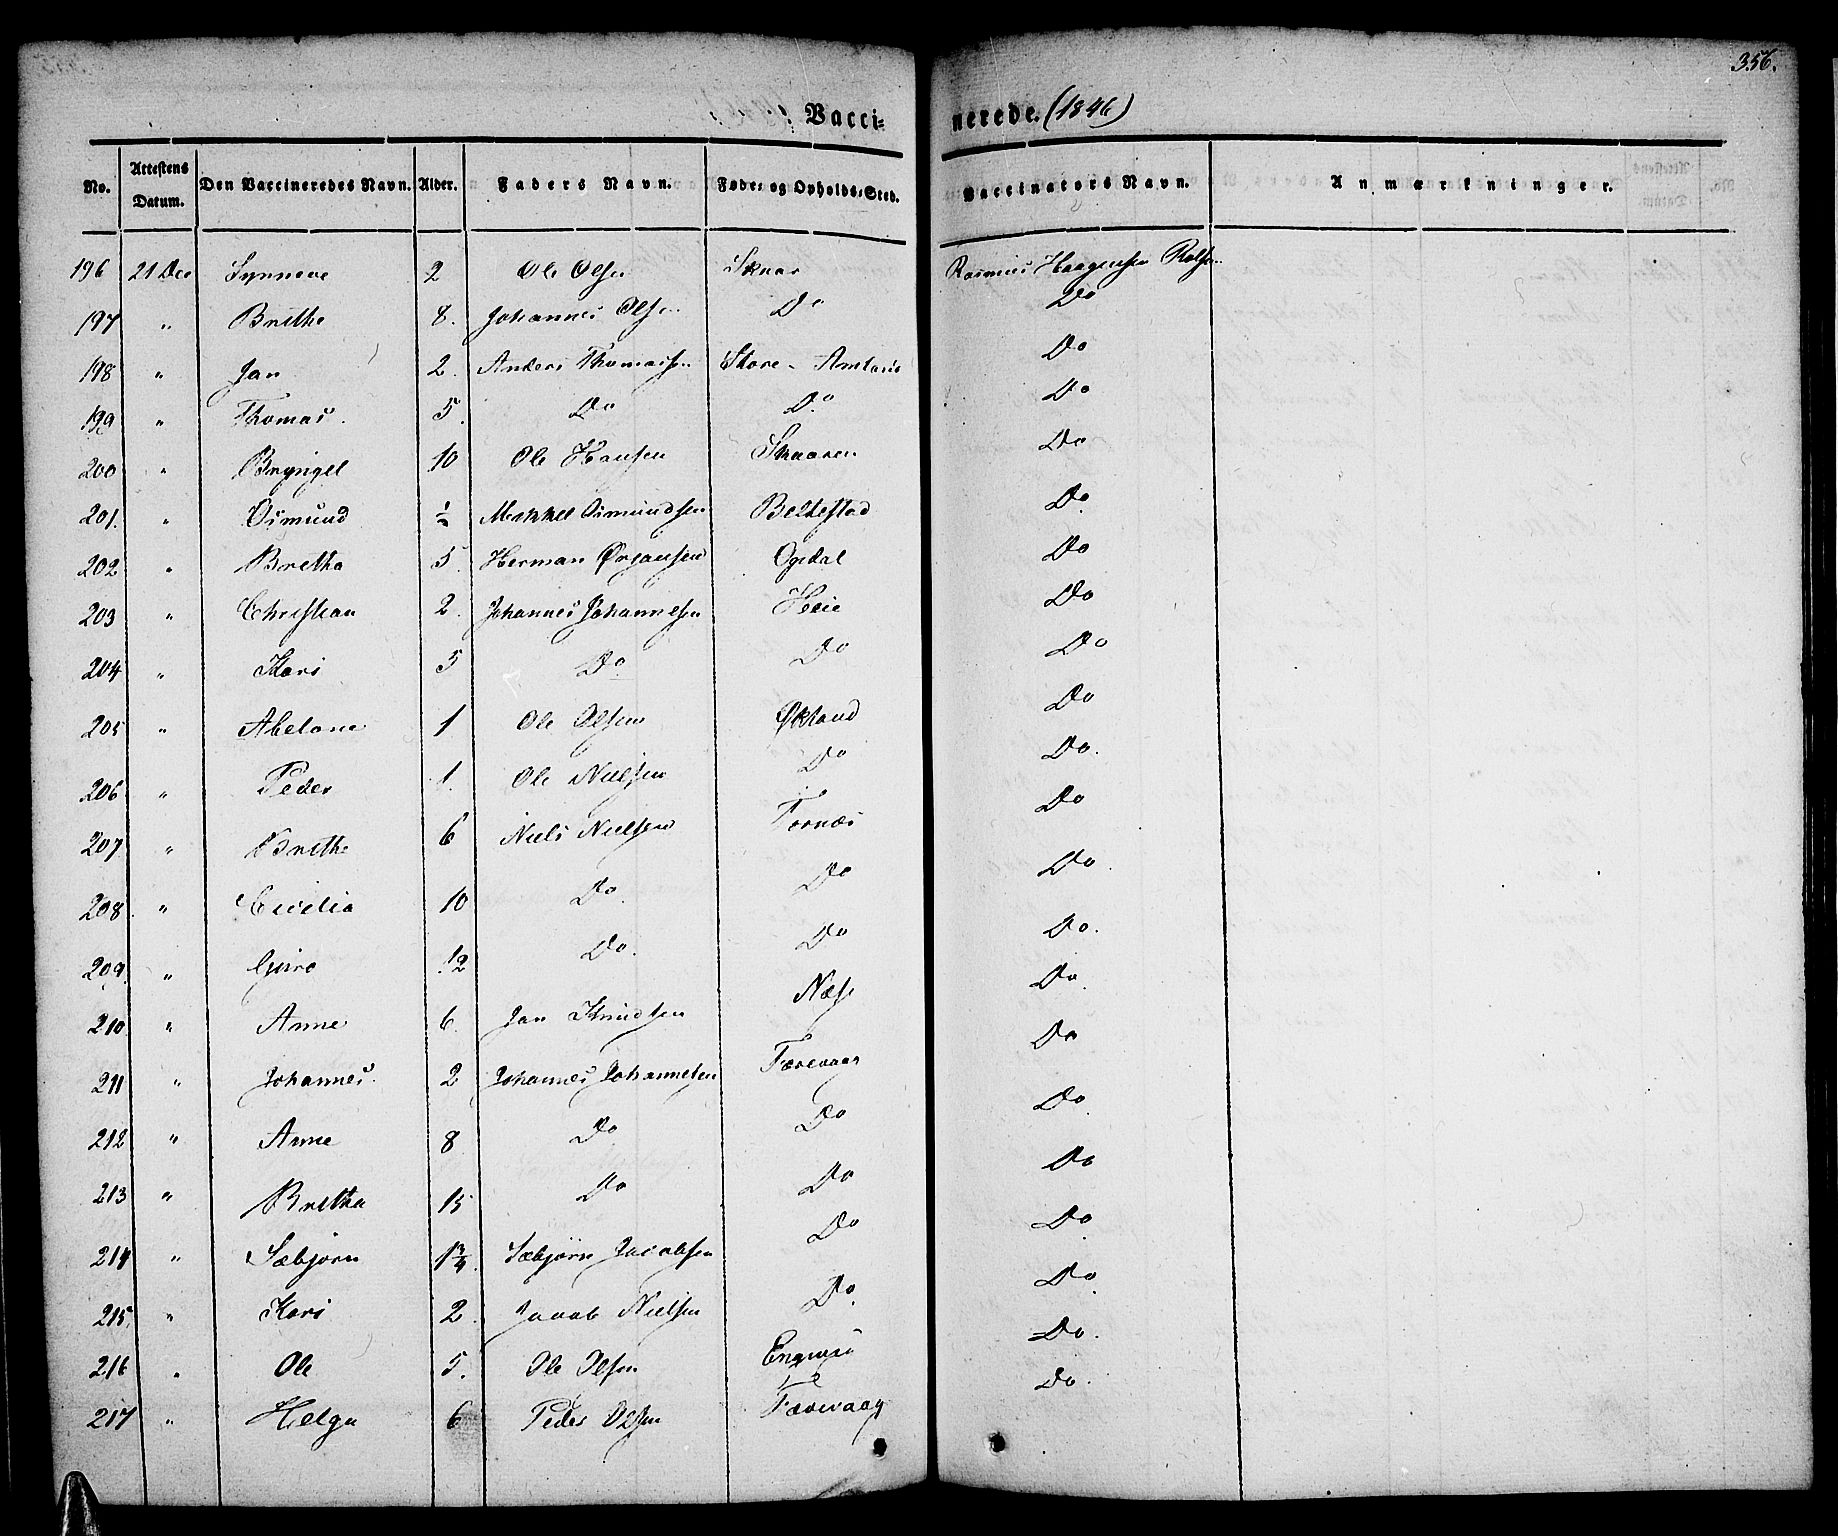 356.
Vacci= nerede. (1846)
No. | Attestens Datum. | Den Vaccineredes Navn. | Alder. | Faders Navn. | Føde- og Opholds-Sted. | Vaccinators Navn. | Anmærkninger.
196 21 Dec Synneve 2 Ole Olsen Rasmus Haagensen
197 " Brithe 8. Johannes Olsen Do Do
198 " Jan 2. Anders Thomassen Store- Do
199 " Thomas. 5. Do Do Do
200 " Bryngel 10 Ole Hansen Skaaren Do
201. " Osmund ½ Mikkel Osmundsen Beltestad Do
202 " Bretha 5. Herman Ørjansen Opdal Do
203 " Christian 2. Johannes Johannesen Heie Do
204 " Kari 5 Do Do Do
205 " Abelone 1 Ole Olsen Økland Do
206 " Peder 1. Ole Nielsen Do Do.
207 " Brithe 6 Niels Nielsen Tornæs Do
208. " Cicilia 10 Do. Do Do.
209. " Guro 12 Do. Do Do.
210 " Anne 6. Jan Knudsen Næse Do
211 " Johannes. 2 Johannes Johannesen Færevaag Do
212 " Anne 8 Do Do Do
213 " Bretha 15 Do Do Do
214 " Sæbjørn 1¾ Sæbjørn Jacobsen Do Do
215. " Kari 2. Jacob Nielsen Do. Do
216 " Ole 5. Ole Olsen Do.
217 " Helga 6 Peder Olsen Færevaag Do.